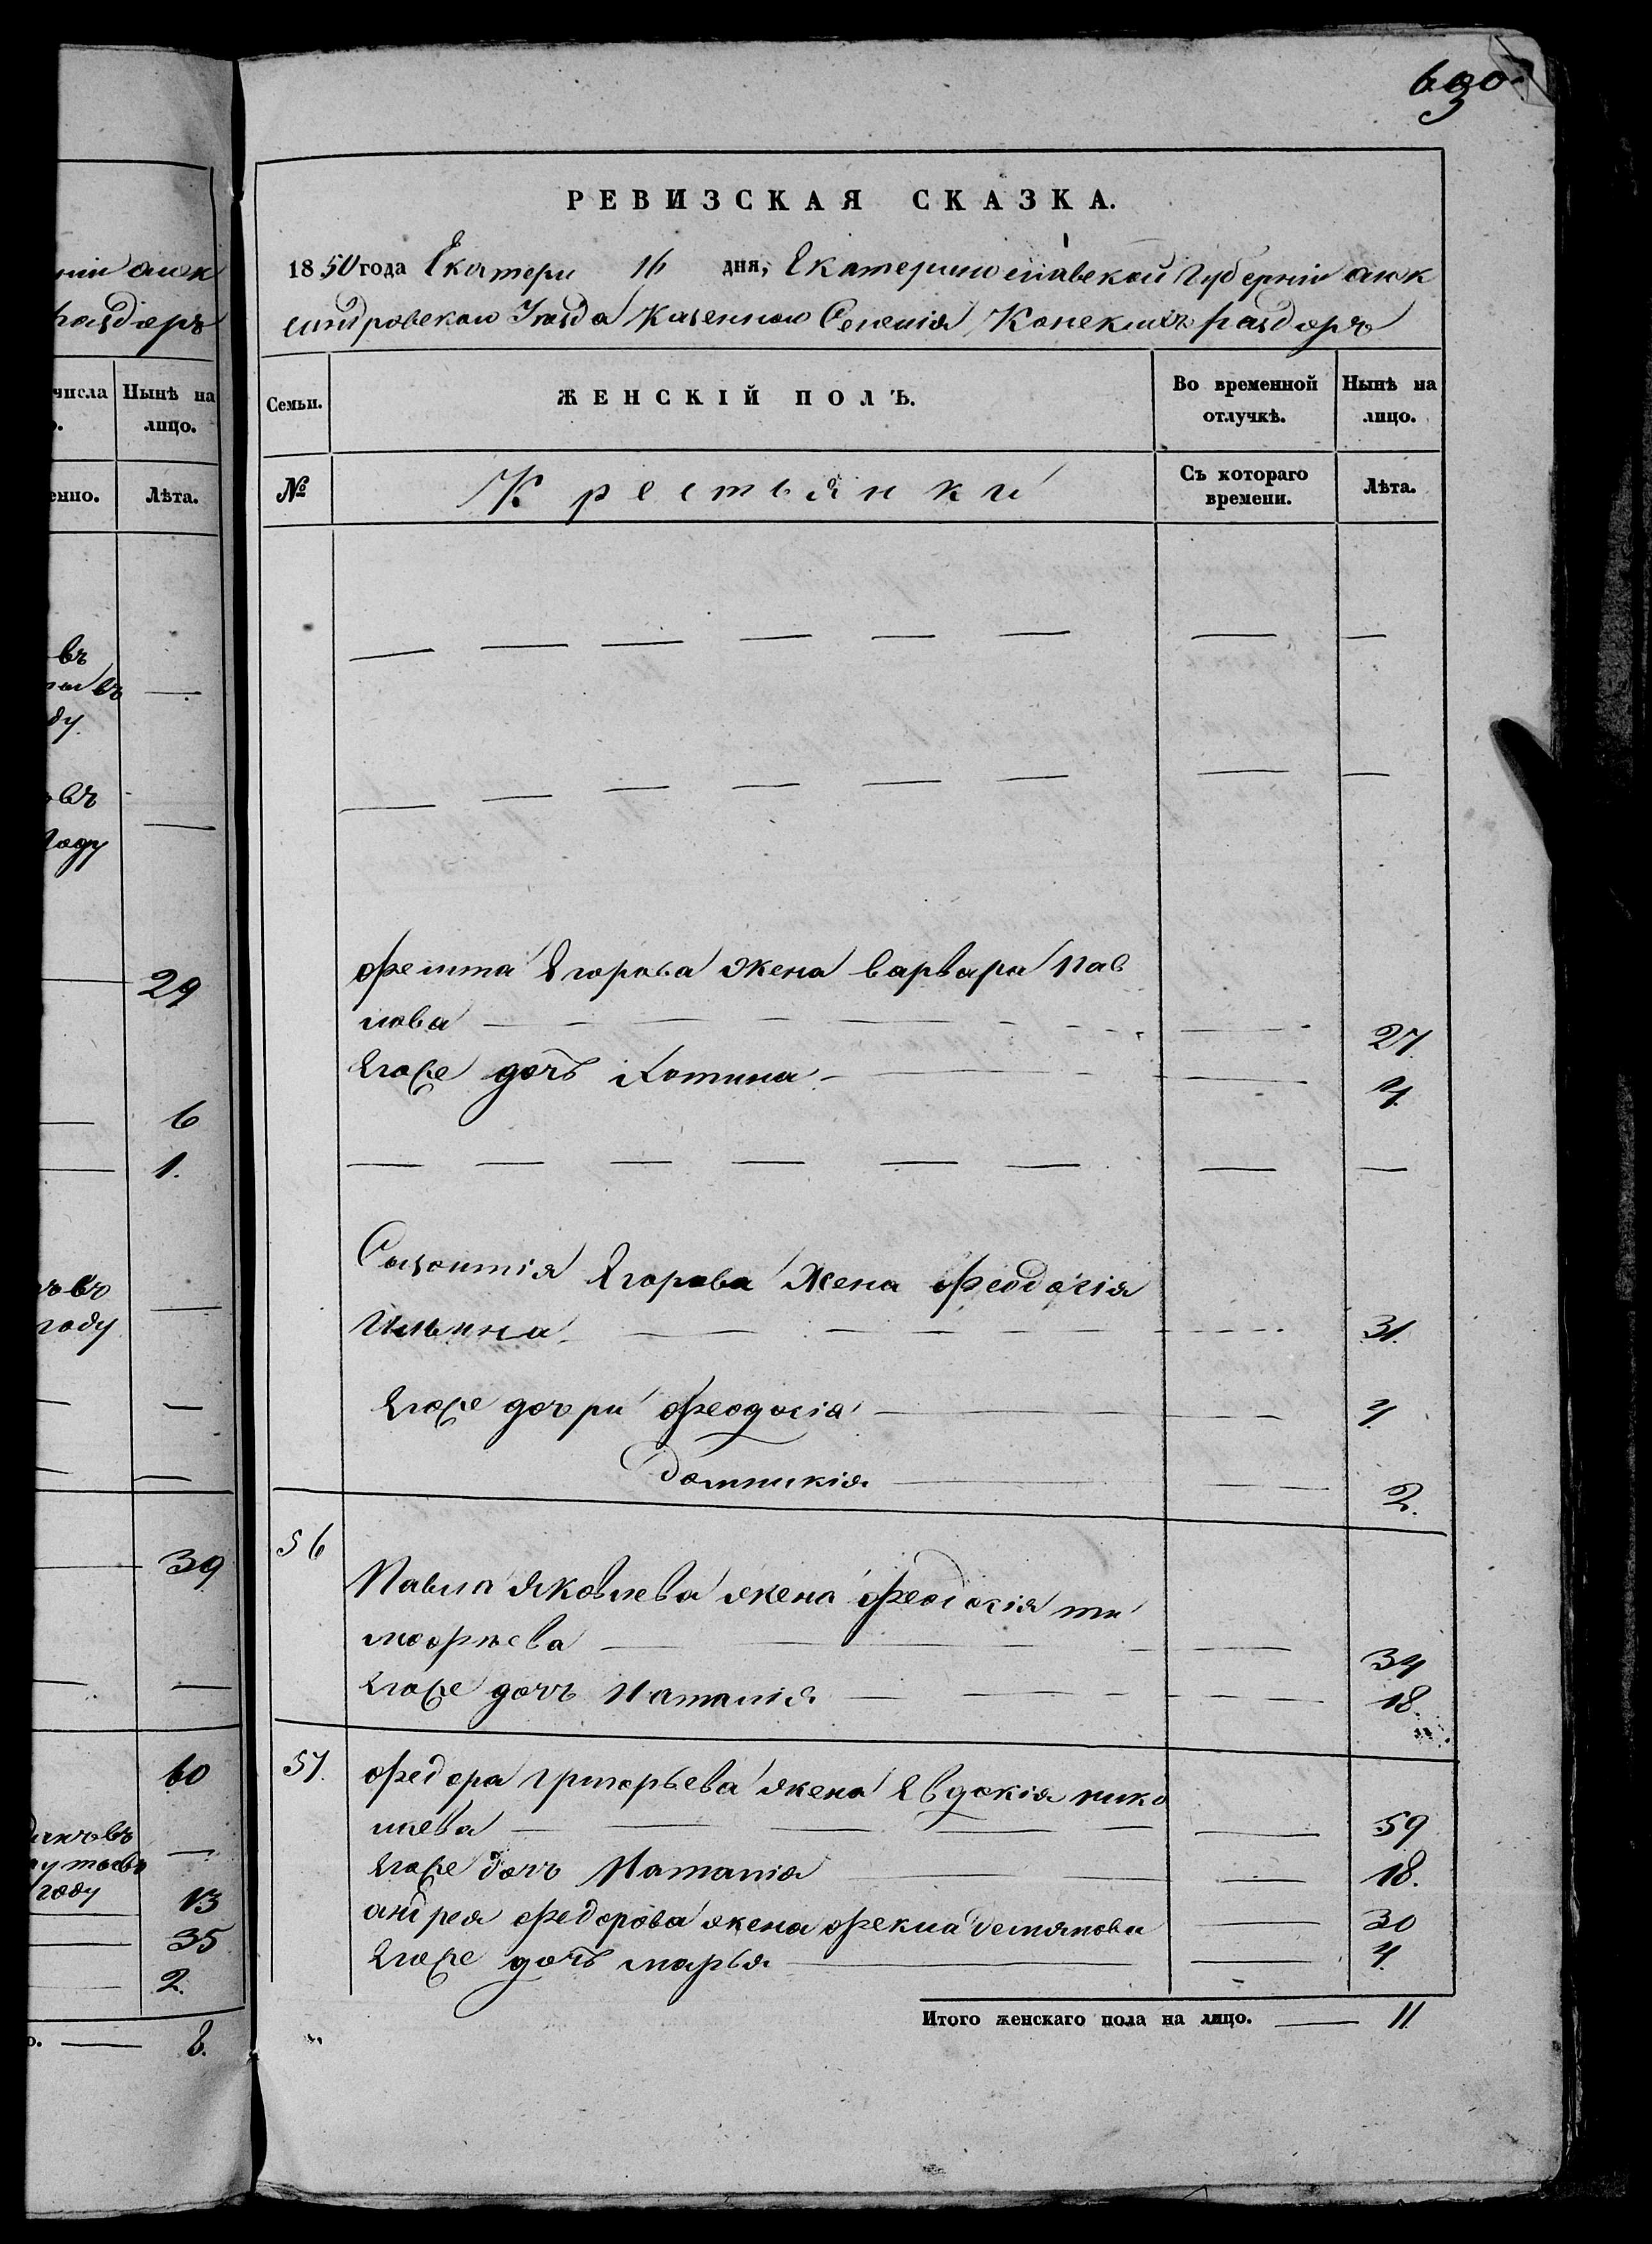 630
РЕВИЗСКАЯ СКАЗКА.
1850 года Екатери 16 дня, Екатеринославской Губерніи алек
сандровскаго Уезда Казеннаго Селенія Конскихъ раздоръ
Семьи. ЖЕНСКІЙ ПОЛЪ. Во временной отлучкѣ. Нынѣ на лицо.
№ Крестьянки Съ котораго времени. Лѣта.
Егорова жена варвара пав
лова 27.
Егоже дочь 4.
Созонтія Егорова жена феодосія
Ильина 31.
Егоже дочри феодосія 4.
домникія 2.
56
Павла Яковлева жена феодосія ти
мофѣева 34
Егоже дочь Наталія 18.
57. федора григорьева жена Евдокія нико
лаева 59
Егоже дочь Наталія 18.
андрея федорова жена фекла демянова 30
Егоже дочь марья 4.
Итого женскаго пола на лицо. 11.
числа Нынѣ на
лицо.
Лѣта.
раздоръ
въ
въ
году
29
6
1.
году
39
60
году
13
35
2.
8.